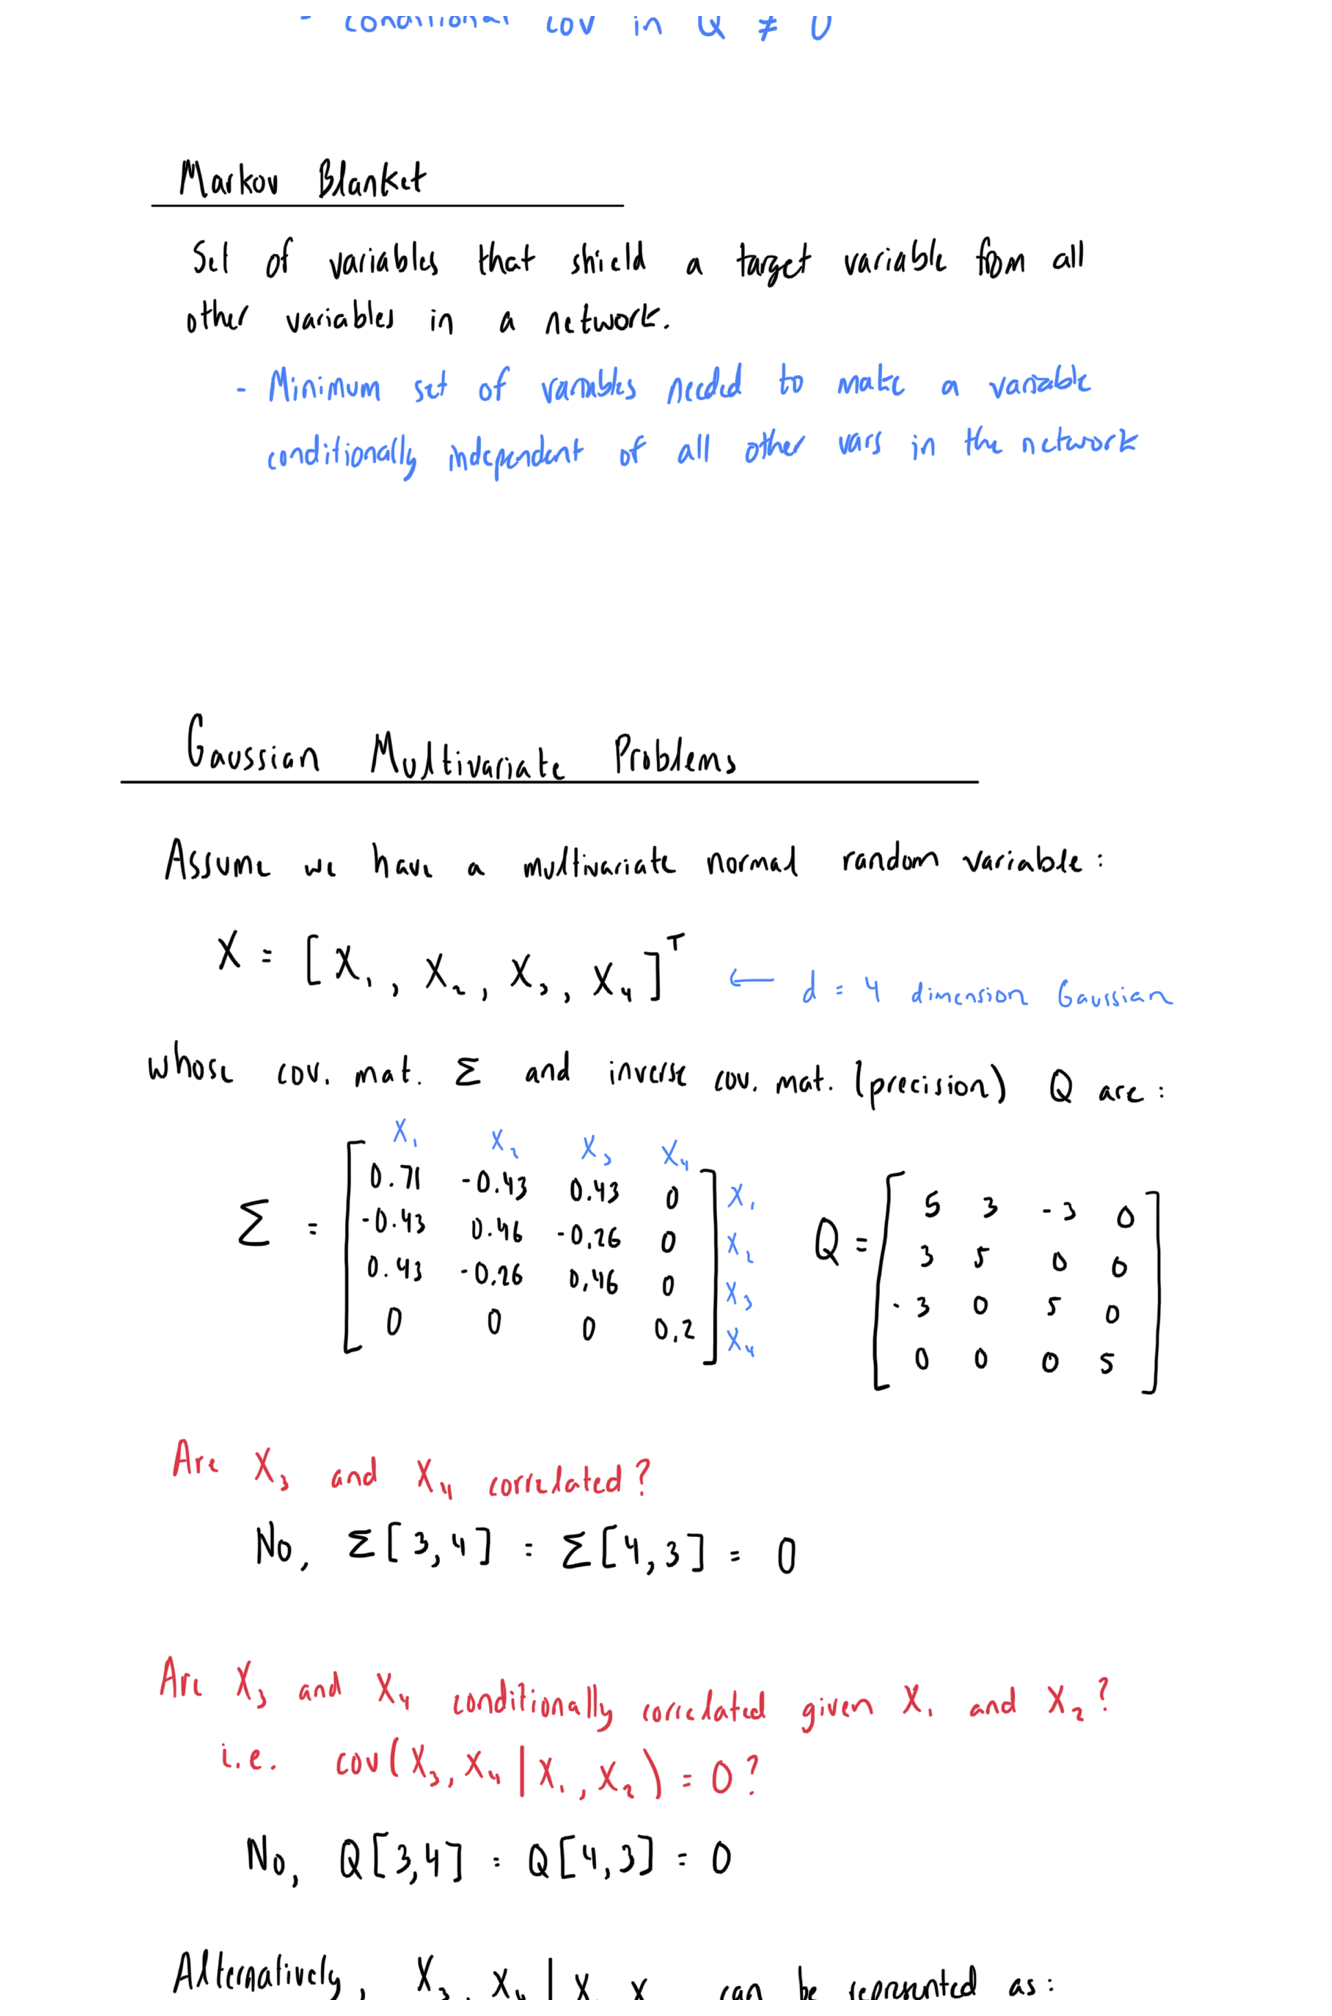 - conditional cov in Q ≠ 0
Markov Blanket
Set of variables that shield a target variable from all
other variables in a network.
- Minimum set of variables needed to make a variable
conditionally independent of all other vars in the network
Gaussian Multivariate Problems
Assume we have a multivariate normal random variable:
X = [X₁, X₂, X₃, X₄]ᵀ ← d = 4 dimension Gaussian
whose cov. mat. Σ and inverse cov. mat. (precision) Q are:
X₁ X₂ X₃ X₄
Σ = [0.71 -0.43 0.43 0] X₁
[-0.43 0.46 -0.26 0] X₂
[0.43 -0.26 0.46 0] X₃
[0 0 0 0.2] X₄
Q = [5 3 -3 0]
[3 5 0 0]
[-3 0 5 0]
[0 0 0 5]
Are X₃ and X₄ correlated?
No, Σ[3,4] = Σ[4,3] = 0
Are X₃ and X₄ conditionally correlated given X₁ and X₂?
i.e. cov(X₃, X₄ | X₁, X₂) = 0?
No, Q[3,4] = Q[4,3] = 0
Alternatively, X₃, X₄ | X, X can be represented as: